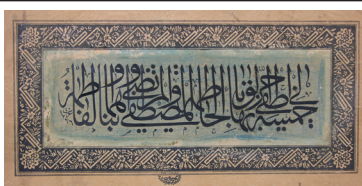 لي خمسة اطفي بها حر الوباء الحاطمة المصطفى والمرتضى وابناهما والفاطمة